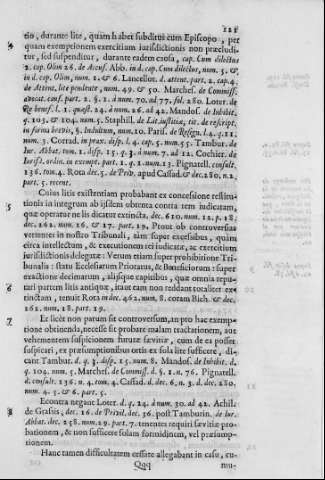 225
tio, durante lite, quam habet subditus cum Episcopo, per
4 quam exemptionem exercitium iurisdictionis non præiudi-
tur, sed suspenditur, durante eadem causa, cap. Cum dilectus
2. cap. Olim 26. de Accus. Abb. in d. cap. Cum dilectus, num. 5, &
in d. cap. Olim, num. 1. & 6. Lancellot. d. attent. part. 2. cap. 4.
de Attent. lite pendente, num. 49. & 50. Marches. de Commiss.
advocat. caus. part. 2. §. 1. d num. 70. ad 77. fol. 280. Loter. de
Re benef. l. 1. quæst. 24. d num. 26. ad 42. Mandos. de Inhibit.
q. 103. & 104. num. 5. Staphill. de Lit. iustitia, tit. de rescript.
in forma brevis, §. Indultum, num. 10. Paris. de Resign. l. 4. q. 11.
num. 33. Corrad. in prax. disp. l. 4. cap. 5. num. 55. Tambur. de
Iur. Abbat. tom. 1. disp. 15. q. 3. d num. 7. ad 12. Cochier. de
Iurisd. ordin. in exempt. part. 1. q. 21. num. 13. Pignatell. consult.
136. tom. 4. Rota dec. 5. de Privil. apud Castald. & dec. 280. n. 2.
part. 5. recent.
Cuius litis existentiam probabant ex concessione restitu-
5 tionis in integrum ab ipsdem obtenta contra rem iudicatam,
quæ operatur ne lis dicatur extincta, dec. 610. num. 12. p. 18.
dec. 262. num. 16. & 17. part. 19. Prout ob controversias
vertentes in nostro Tribunali, tam super expensibus, quam
circa intellectum, & executionem rei iudicatæ, ac exercitium
iurisdictionis delegatæ: Verum etiam super prohibitione Tri-
bunalis: statu Ecclesiarum Prioratus, & Beneficiorum: super
exactione decimarum, aliisque capitibus, quæ omnia repu-
6 tari partem litis antiquæ, istamque tam non reddant totaliter ex-
tinctam, tenuit Rota in dec. 462. num. 8. coram Bich. & dec.
262. num. 18. part. 19.
7 Et licet non parum sit controversum, an pro hac exemp-
tione obtinenda, necesse sit probare malam tractationem, aut
vehementem suspicionem futuræ sævitiæ, cum de ea posset
suspicari, ex præsumptionibus ortis ex sola lite sufficere, di-
cant Tambur. d. q. 3. disp. 15. num. 8. Mandos. de Inhibit. d.
q. 104. num. 5. Marches. de Commiss. d. §. 1. n. 76. Pignatell.
d. consult. 136. n. 4. tom. 4. Castald. d. dec. 6. n. 3. d. dec. 280.
num. 4. 5. & 6. part. 5.
Econtra negant Loter. d. q. 24. d num. 30. ad 42. Achil.
8 de Grassis, dec. 16. de Privil. dec. 36. post Tamburin. de Iur.
Abbat. dec. 258. num. 29. part. 7. tenentes requiri sævitiæ pro-
bationem, & non sufficere solam formidinem, vel præsump-
tionem.
Hanc tamen difficultatem cessare allegabant in casu, cu-
Qqq mu-